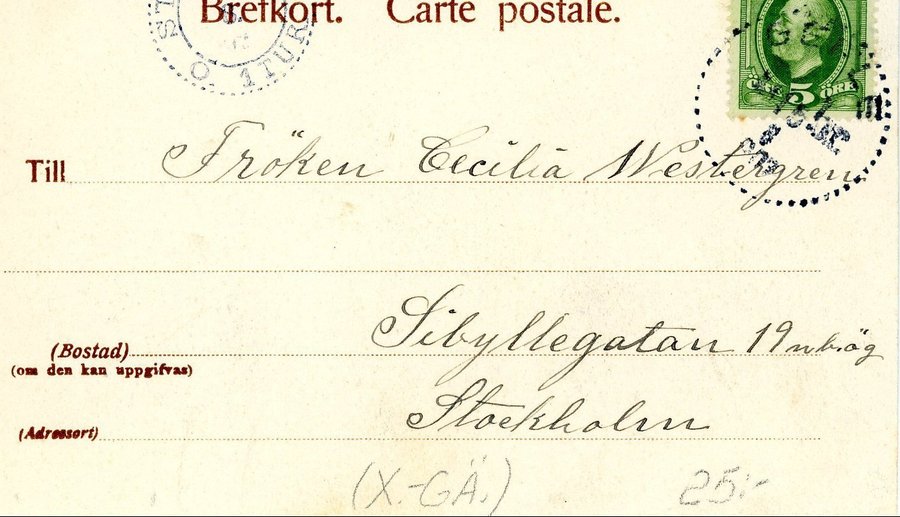 Brefkort. Carte postale.
ST
O. 1TUR
5 ÖRE
Till Fröken Cecilia Westergren
(Bostad) Sibyllegatan 19
(om den kan uppgifvas)
(Adressort) Stockholm
(X.-GÄ.) 25:-